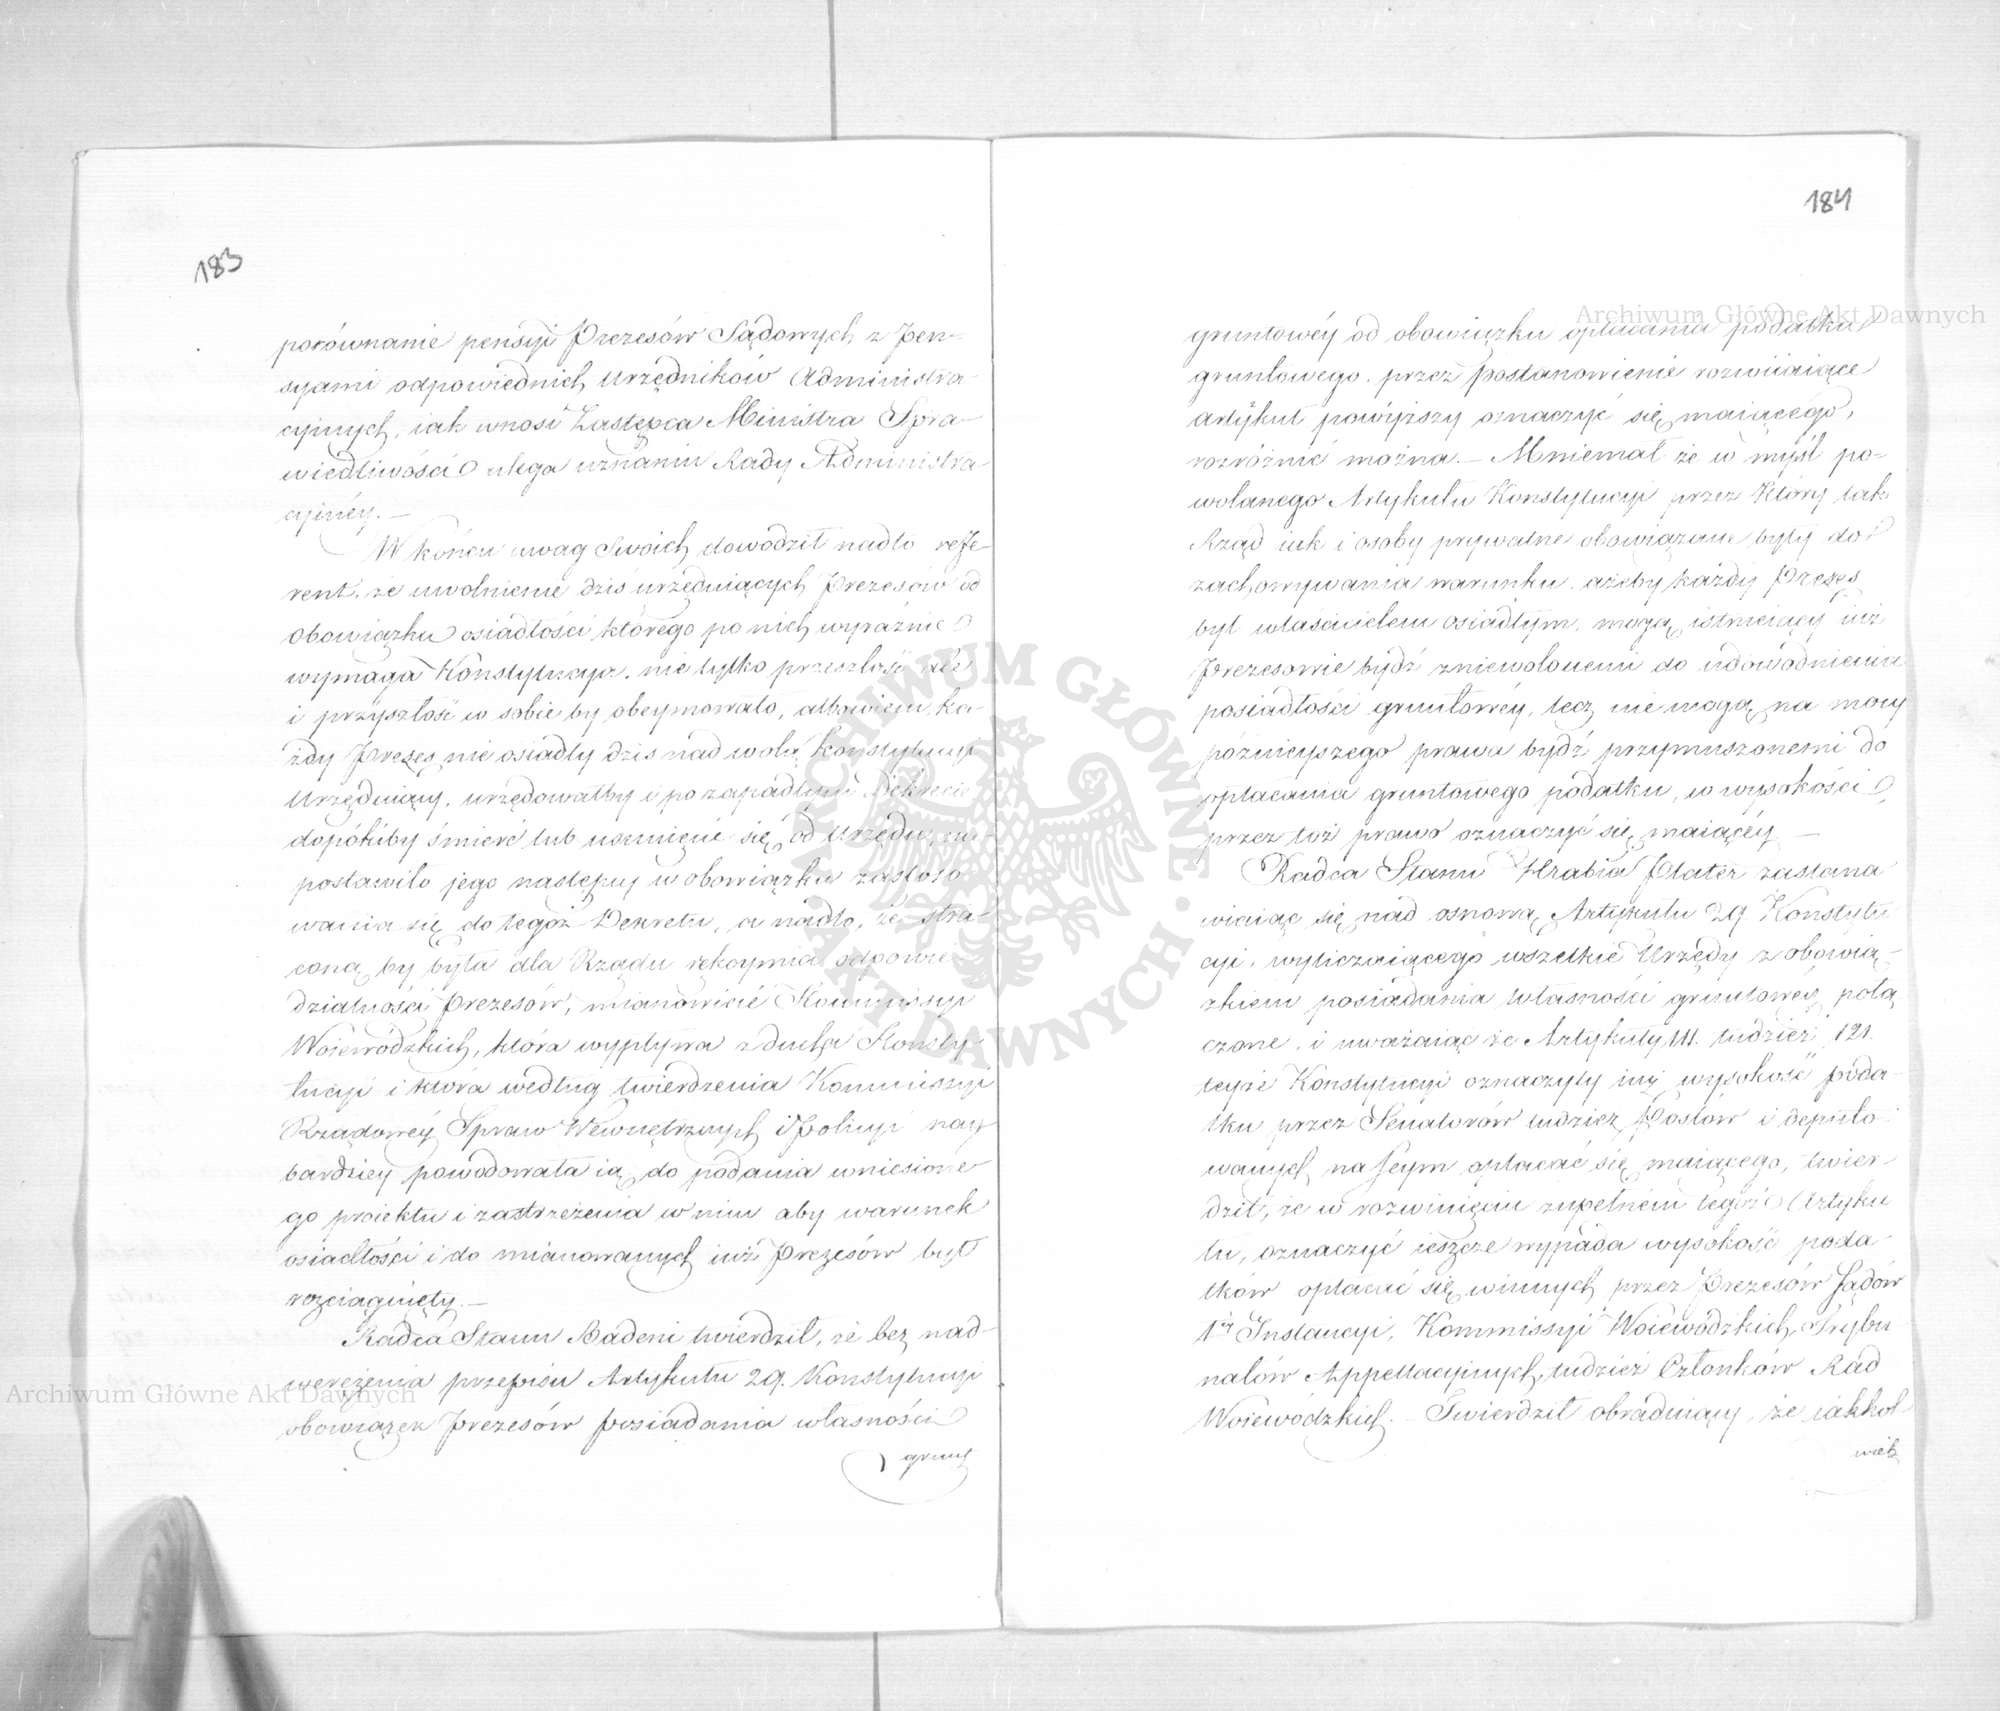 183
porównanie pensyi Prezesów Sądowych z pen-
syami odpowiednich Urzędników Administra-
cyinych, iak wnosi Zastępca Ministra Spra-
wiedliwości ulega uznaniu Rady Administra-
cyinéy. —
W końcu uwag swoich dowodził nadto refe-
rent, że uwolnienie dziś urzęduiących Prezesów od
obowiązku osiadłości którego po nich wyraźnie
wymaga Konstytucya, nie tylko przeszłość ale
i przyszłość w sobie by obeymowało, albowiem ka-
żdy Prezes nie osiadły dziś nad wolą Konstytucyi
Urzęduiący, urzędowałby i po zapadłym Dekrecie
dopókiby śmierć lub usunięcie się od Urzędu, nie
postawiło jego następcy w obowiązku zastoso-
wania się do tegoż Dekretu, a nadto, że stra-
coną by była dla Rządu rękoymia odpowie-
dzialności Prezesów, mianowicie Kommissyi
Woiewódzkich, która wypływa z ducha Konsty-
tucyi i która według twierdzenia Kommissyi
Rządowéy Spraw Wewnętrznych i Policyi nay-
bardziey powodowała ią do podania wniesione-
go proiektu i zastrzeżenia w nim aby warunek
osiadłości i do mianowanych iuż Prezesów był
rozciągnięty. —
Radca Stanu Badeni twierdził, że bez nad-
weręzenia przepisu Artykułu 29. Konstytucyi
obowiązek Prezesów posiadania własności
grunt
184
gruntowéy od obowiązku opłacania podatku
gruntowego, przez postanowienie rozwiiaiące
artykuł powyższy oznaczyć się maiącego,
rozróżnić można. — Mniemał że w myśl po-
wołanego Artykułu Konstytucyi przez który tak
Rząd iak i osoby prywatne obowiązane były do
zachowywania warunku, ażeby każdy Prezes
był właścicielem osiadłym, mogą istnieiący iuż
Prezesowie bydź zniewolonemi do udowodnienia
posiadłości gruntowéy, lecz nie mogą na mocy
późnieyszego prawa bydź przymuszonemi do
opłacania gruntowego podatku, w wysokości
przez toż prawo oznaczyć się maiącéy. —
Radca Stanu Hrabia Plater zastana
wiaiąc się nad osnową Artykułu 29 Konstytu
cyi, wyliczaiącego wszelkie Urzędy z obowią-
zkiem posiadania własności gruntowey połą
czone, i uważaiąc że Artykuły 111. tudzież 121
teyże Konstytucyi oznaczyły iuż wysokość poda-
tku przez Senatorów tudzież Posłów i deputo-
wanych na Seym opłacać się maiącego, twier-
dził, że w rozwinięciu zupełném tegoż Artyku
łu, oznaczyć ieszcze wypada wysokość poda-
tków opłacać się winnych przez Prezesów Sądów
1éj Instancyi, Kommissyi Woiewódzkich, Trybu
nałów Appellacyinych, tudzież Członków Rad
Woiewódzkich. — Twierdził obraduiący, że iakkol
wiek
Archiwum Główne Akt Dawnych
Archiwum Główne Akt Dawnych
ARCHIWUM GŁÓWNE · AKT DAWNYCH ·